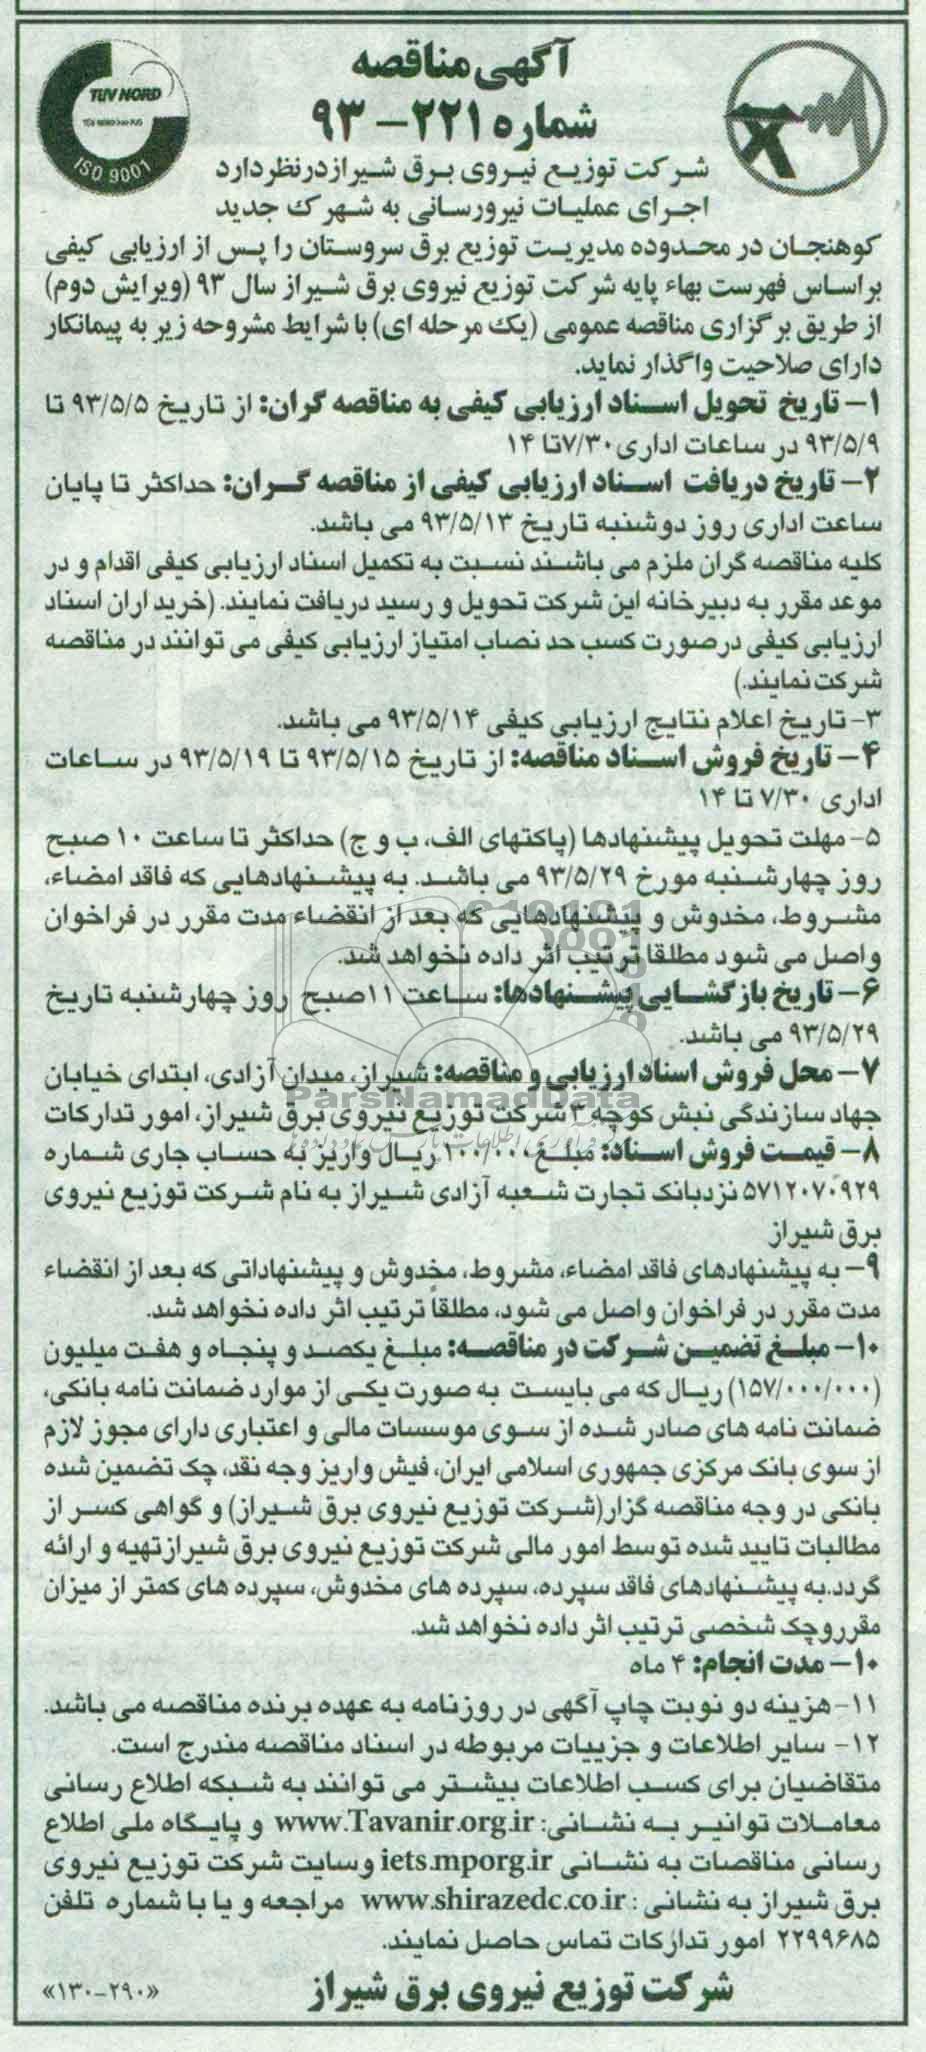 آگهی مناقصه
شماره ۲۲۱- ۹۳
TUV NORD
ISO 9001
شرکت توزیع نیروی برق شیراز در نظر دارد
اجرای عملیات نیرورسانی به شهرک جدید
کوهنجان در محدوده مدیریت توزیع برق سروستان را پس از ارزیابی کیفی
براساس فهرست بهاء پایه شرکت توزیع نیروی برق شیراز سال ۹۳ (ویرایش دوم)
از طریق برگزاری مناقصه عمومی (یک مرحله ای) با شرایط مشروحه زیر به پیمانکار
دارای صلاحیت واگذار نماید.
۱- تاریخ تحویل اسناد ارزیابی کیفی به مناقصه گران: از تاریخ ۹۳/۵/۵ تا
۹۳/۵/۹ در ساعات اداری ۷/۳۰ تا ۱۴
۲- تاریخ دریافت اسناد ارزیابی کیفی از مناقصه گران: حداکثر تا پایان
ساعت اداری روز دوشنبه تاریخ ۹۳/۵/۱۳ می باشد.
کلیه مناقصه گران ملزم می باشند نسبت به تکمیل اسناد ارزیابی کیفی اقدام و در
موعد مقرر به دبیرخانه این شرکت تحویل و رسید دریافت نمایند. (خریداران اسناد
ارزیابی کیفی درصورت کسب حد نصاب امتیاز ارزیابی کیفی می توانند در مناقصه
شرکت نمایند.)
۳- تاریخ اعلام نتایج ارزیابی کیفی ۹۳/۵/۱۴ می باشد.
۴- تاریخ فروش اسناد مناقصه: از تاریخ ۹۳/۵/۱۵ تا ۹۳/۵/۱۹ در ساعات
اداری ۷/۳۰ تا ۱۴
۵- مهلت تحویل پیشنهادها (پاکتهای الف، ب و ج) حداکثر تا ساعت ۱۰ صبح
روز چهارشنبه مورخ ۹۳/۵/۲۹ می باشد. به پیشنهادهایی که فاقد امضاء،
مشروط، مخدوش و پیشنهادهایی که بعد از انقضاء مدت مقرر در فراخوان
واصل می شود مطلقا ترتیب اثر داده نخواهد شد.
۶- تاریخ بازگشایی پیشنهادها: ساعت ۱۱صبح روز چهارشنبه تاریخ
۹۳/۵/۲۹ می باشد.
۷- محل فروش اسناد ارزیابی و مناقصه: شیراز، میدان آزادی، ابتدای خیابان
ParsNamadData
جهاد سازندگی نبش کوچه ۳ شرکت توزیع نیروی برق شیراز، امور تدارکات
۸- قیمت فروش اسناد: مبلغ ۱۰۰/۰۰۰ ریال واریز به حساب جاری شماره
۵۷۱۲۰۷۰۹۲۹ نزد بانک تجارت شعبه آزادی شیراز به نام شرکت توزیع نیروی
برق شیراز
۹- به پیشنهادهای فاقد امضاء، مشروط، مخدوش و پیشنهاداتی که بعد از انقضاء
مدت مقرر در فراخوان واصل می شود، مطلقاً ترتیب اثر داده نخواهد شد.
۱۰- مبلغ تضمین شرکت در مناقصه: مبلغ یکصد و پنجاه و هفت میلیون
(۱۵۷/۰۰۰/۰۰۰) ریال که می بایست به صورت یکی از موارد ضمانت نامه بانکی،
ضمانت نامه های صادر شده از سوی موسسات مالی و اعتباری دارای مجوز لازم
از سوی بانک مرکزی جمهوری اسلامی ایران، فیش واریز وجه نقد، چک تضمین شده
بانکی در وجه مناقصه گزار(شرکت توزیع نیروی برق شیراز) و گواهی کسر از
مطالبات تایید شده توسط امور مالی شرکت توزیع نیروی برق شیراز تهیه و ارائه
گردد.به پیشنهادهای فاقد سپرده، سپرده های مخدوش، سپرده های کمتر از میزان
مقرروچک شخصی ترتیب اثر داده نخواهد شد.
۱۰- مدت انجام: ۴ ماه
۱۱- هزینه دو نوبت چاپ آگهی در روزنامه به عهده برنده مناقصه می باشد.
۱۲- سایر اطلاعات و جزییات مربوطه در اسناد مناقصه مندرج است.
متقاضیان برای کسب اطلاعات بیشتر می توانند به شبکه اطلاع رسانی
معاملات توانیر به نشانی: www.Tavanir.org.ir و پایگاه ملی اطلاع
رسانی مناقصات به نشانی iets.mporg.ir وسایت شرکت توزیع نیروی
برق شیراز به نشانی : www.shirazedc.co.ir مراجعه و یا با شماره تلفن
۲۲۹۹۶۸۵ امور تدارکات تماس حاصل نمایند.
شرکت توزیع نیروی برق شیراز
«۱۳۰-۲۹۰»